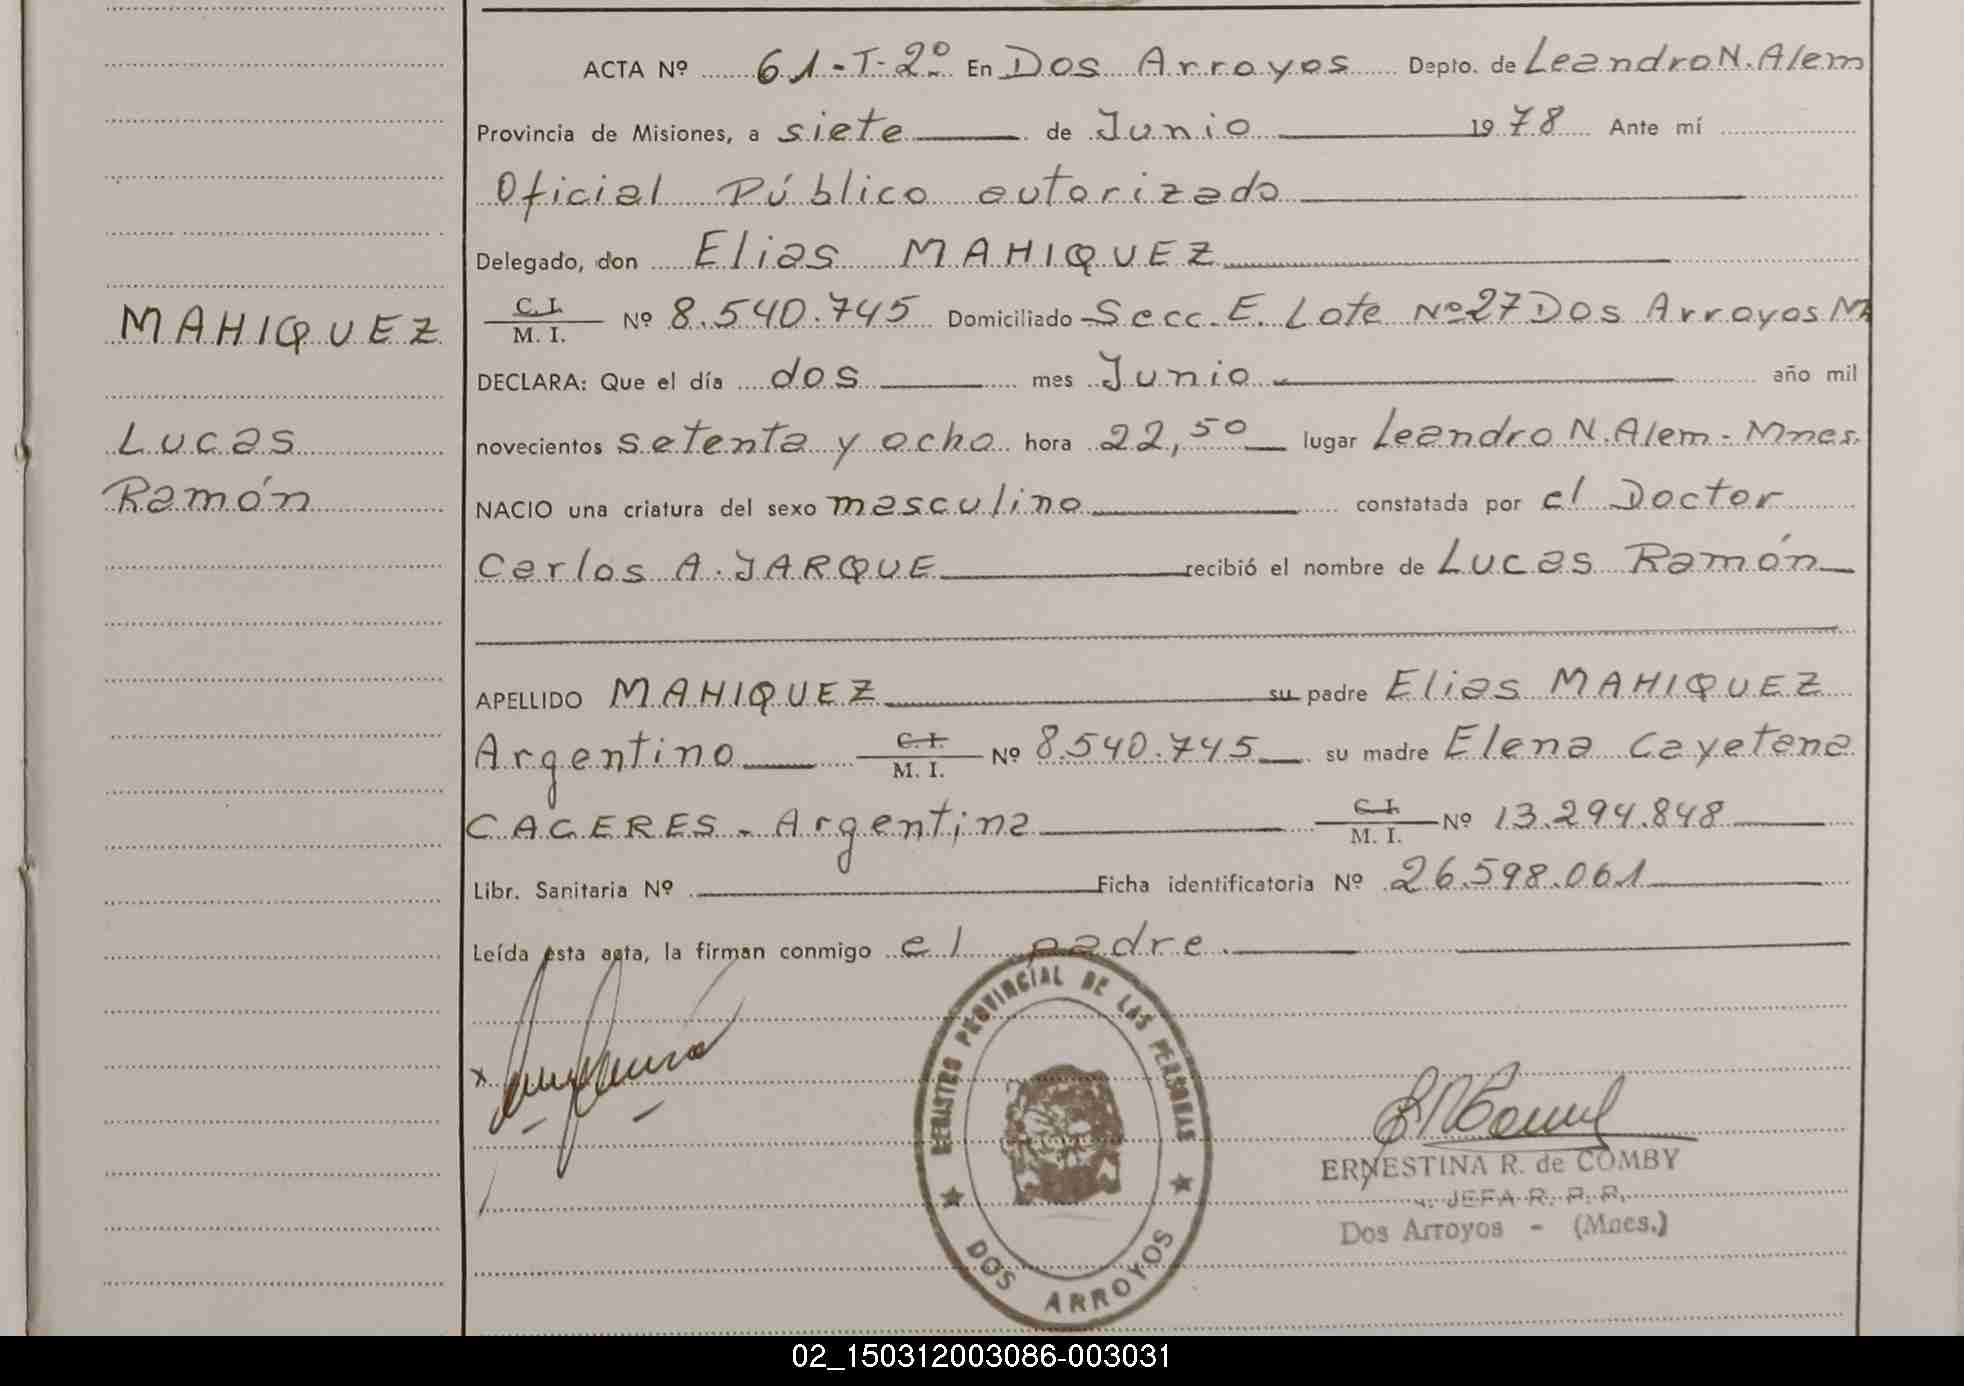 ACTA Nº 61-T-2º En Dos Arroyos Depto. de Leandro N. Alem
Provincia de Misiones, a siete de Junio 1978 Ante mí
Oficial Público autorizado
Delegado, don Elias MAHIQUEZ
MAHIQUEZ
C. I. / M. I. Nº 8.540.745 Domiciliado Secc. E. Lote Nº 27 Dos Arroyos
DECLARA: Que el día dos mes Junio año mil
Lucas
novecientos setenta y ocho hora 22,50 lugar Leandro N. Alem - Mnes.
Ramón
NACIO una criatura del sexo masculino constatada por el Doctor
Carlos A. JARQUE recibió el nombre de Lucas Ramón
APELLIDO MAHIQUEZ su padre Elias MAHIQUEZ
Argentino C. I. / M. I. Nº 8.540.745 su madre Elena Cayetana
CACERES - Argentina C. I. / M. I. Nº 13.294.848
Libr. Sanitaria Nº Ficha identificatoria Nº 26.598.061
Leída esta acta, la firman conmigo el padre.
REGISTRO PROVINCIAL DE LAS PERSONAS
DOS ARROYOS
ERNESTINA R. de COMBY
JEFA R. P. P.
Dos Arroyos - (Mnes.)
02_150312003086-003031